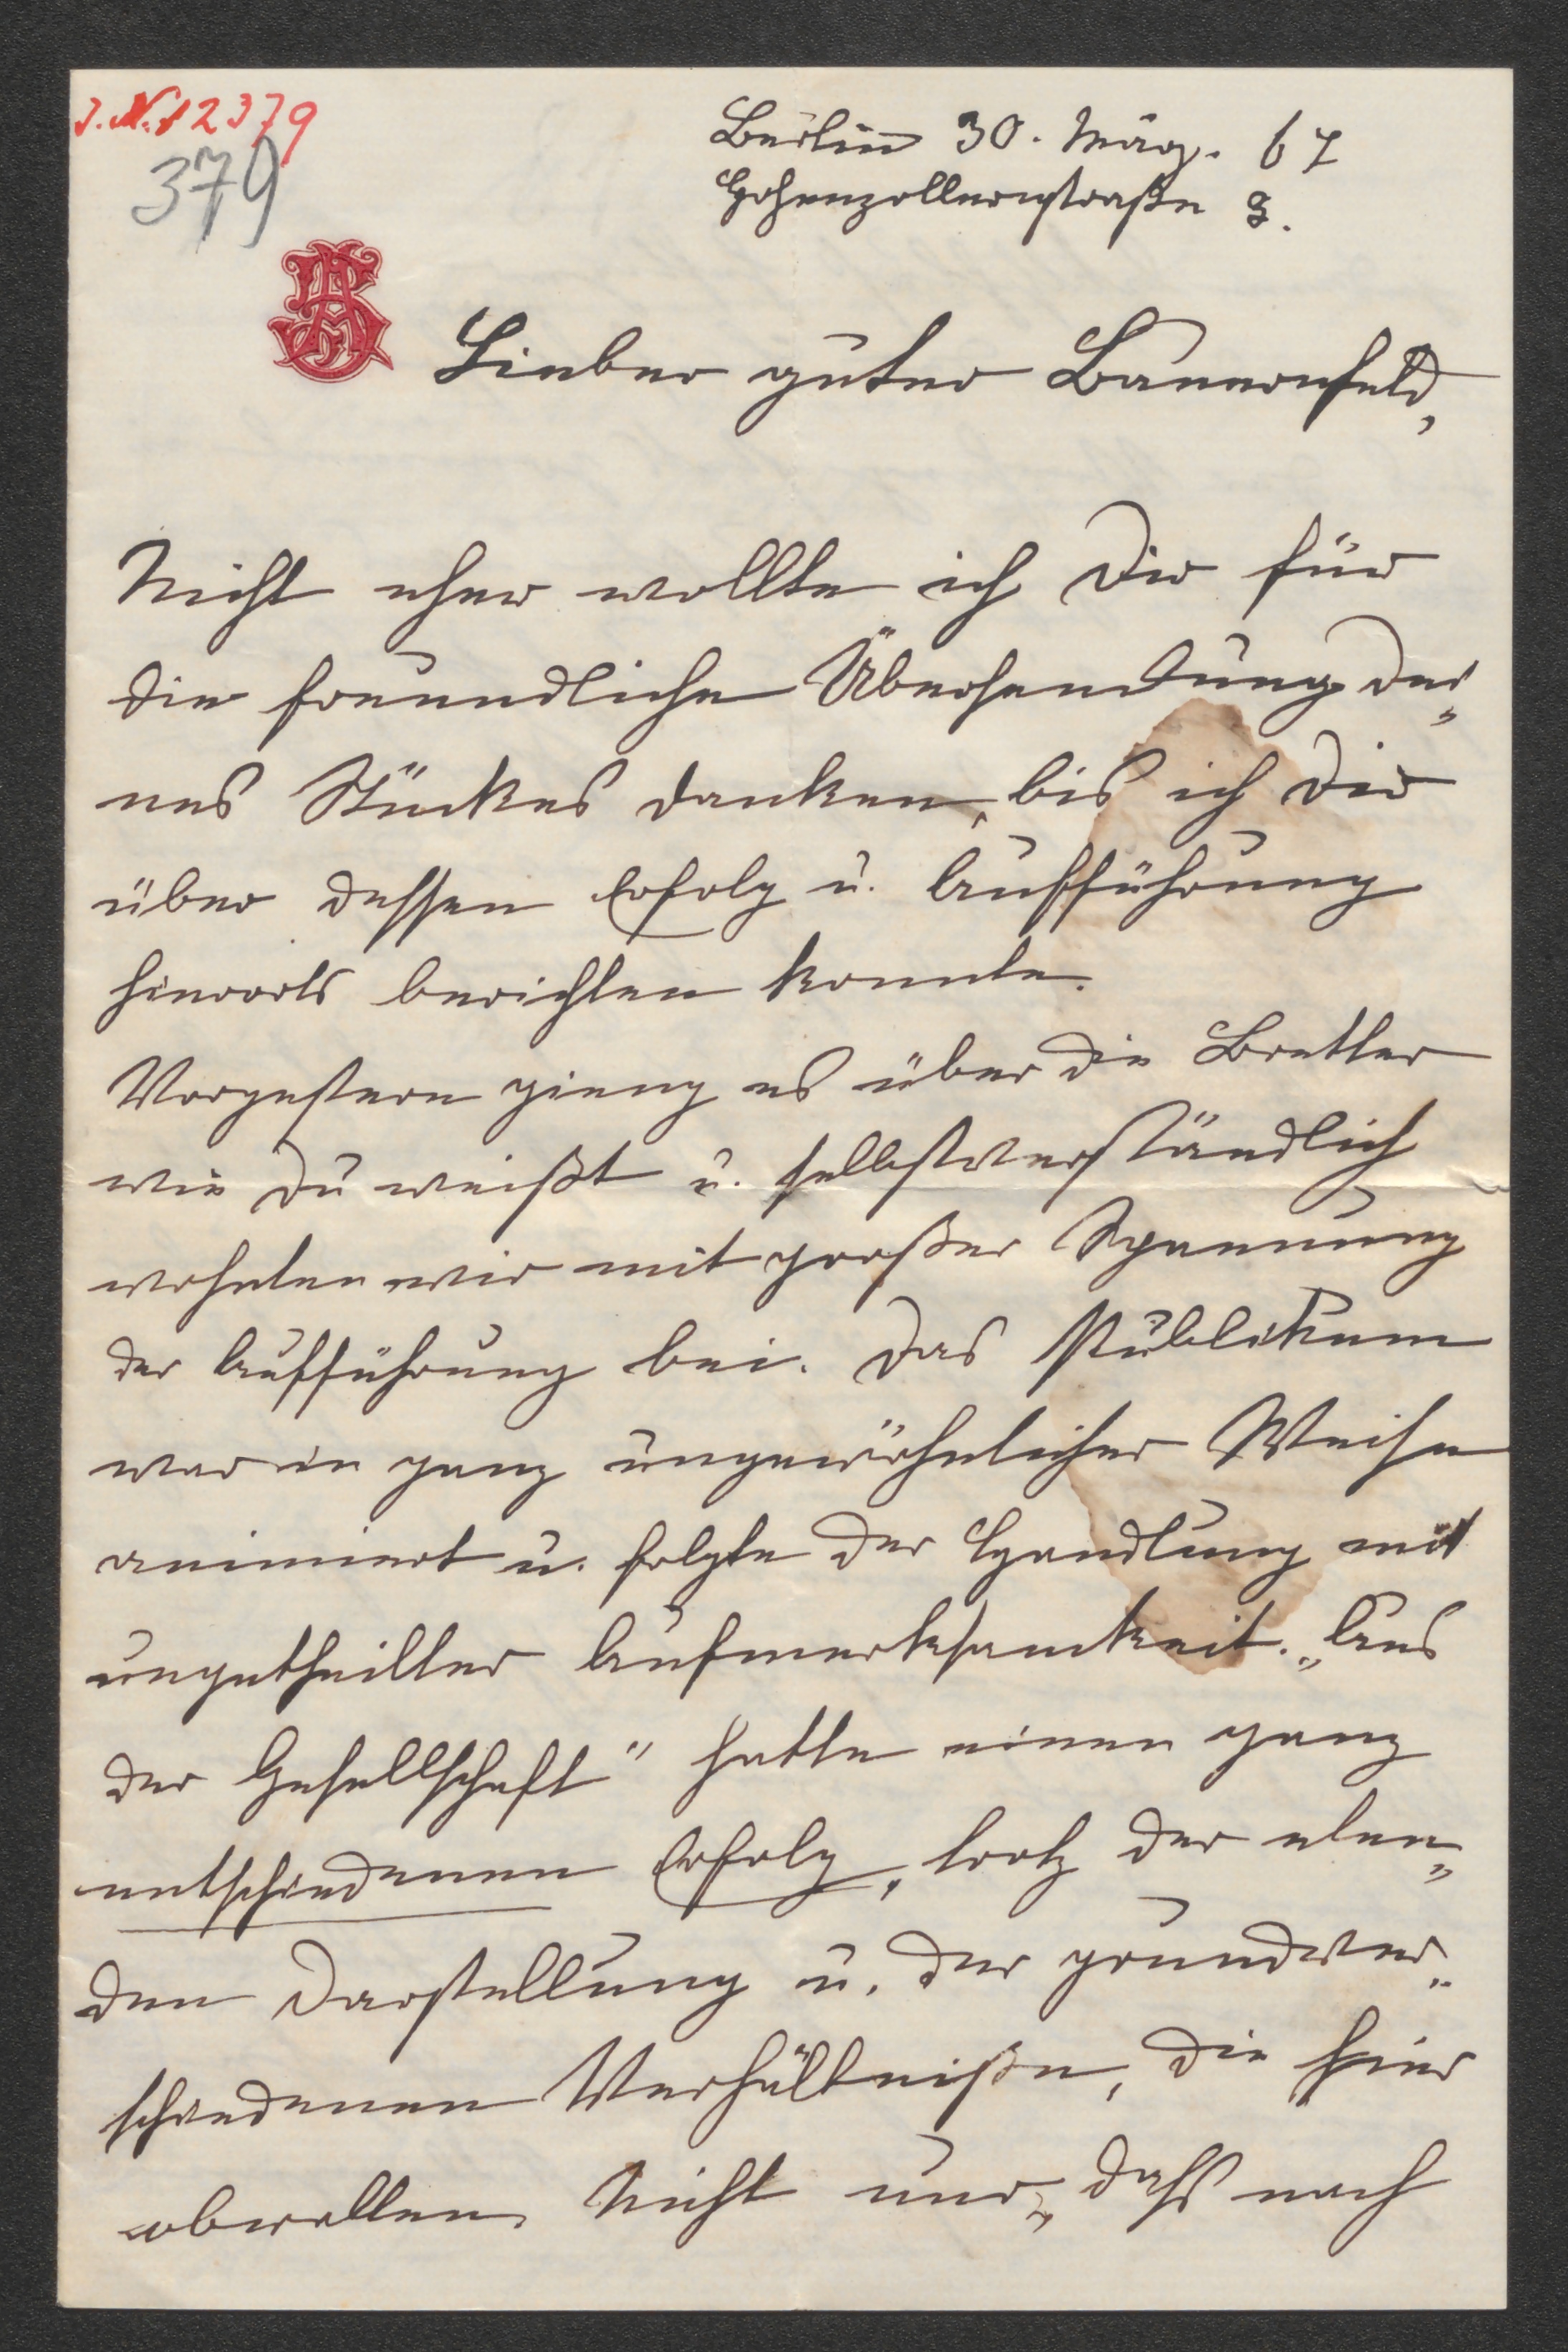 J. N. 12379
379
Berlin 30. März. 67
Hohenzollernstraße 8.
AS
Lieber guter Bauernfeld,
Nicht eher wollte ich Dir für
die freundliche Übersendung Dei„
nes Stückes danken, bis ich Dir
über dessen Erfolg u. Aufführung
hierorts berichten konnte.
Vorgestern gieng es über die Bretter
wie Du weißt u. selbstverständlich
wohnten wir mit großer Spannung
der Aufführung bei. Das Publikum
war in ganz ungewöhnlicher Weise
animiert u. folgte der Handlung mit
ungetheilter Aufmerksamkeit. „Aus
der Gesellschaft“ hatte einen ganz
entschiedenen Erfolg, trotz der elen„
den Darstellung u. der grundver„
schiedenen Verhältniße, die hier
obwalten. Nicht nur, daß nach